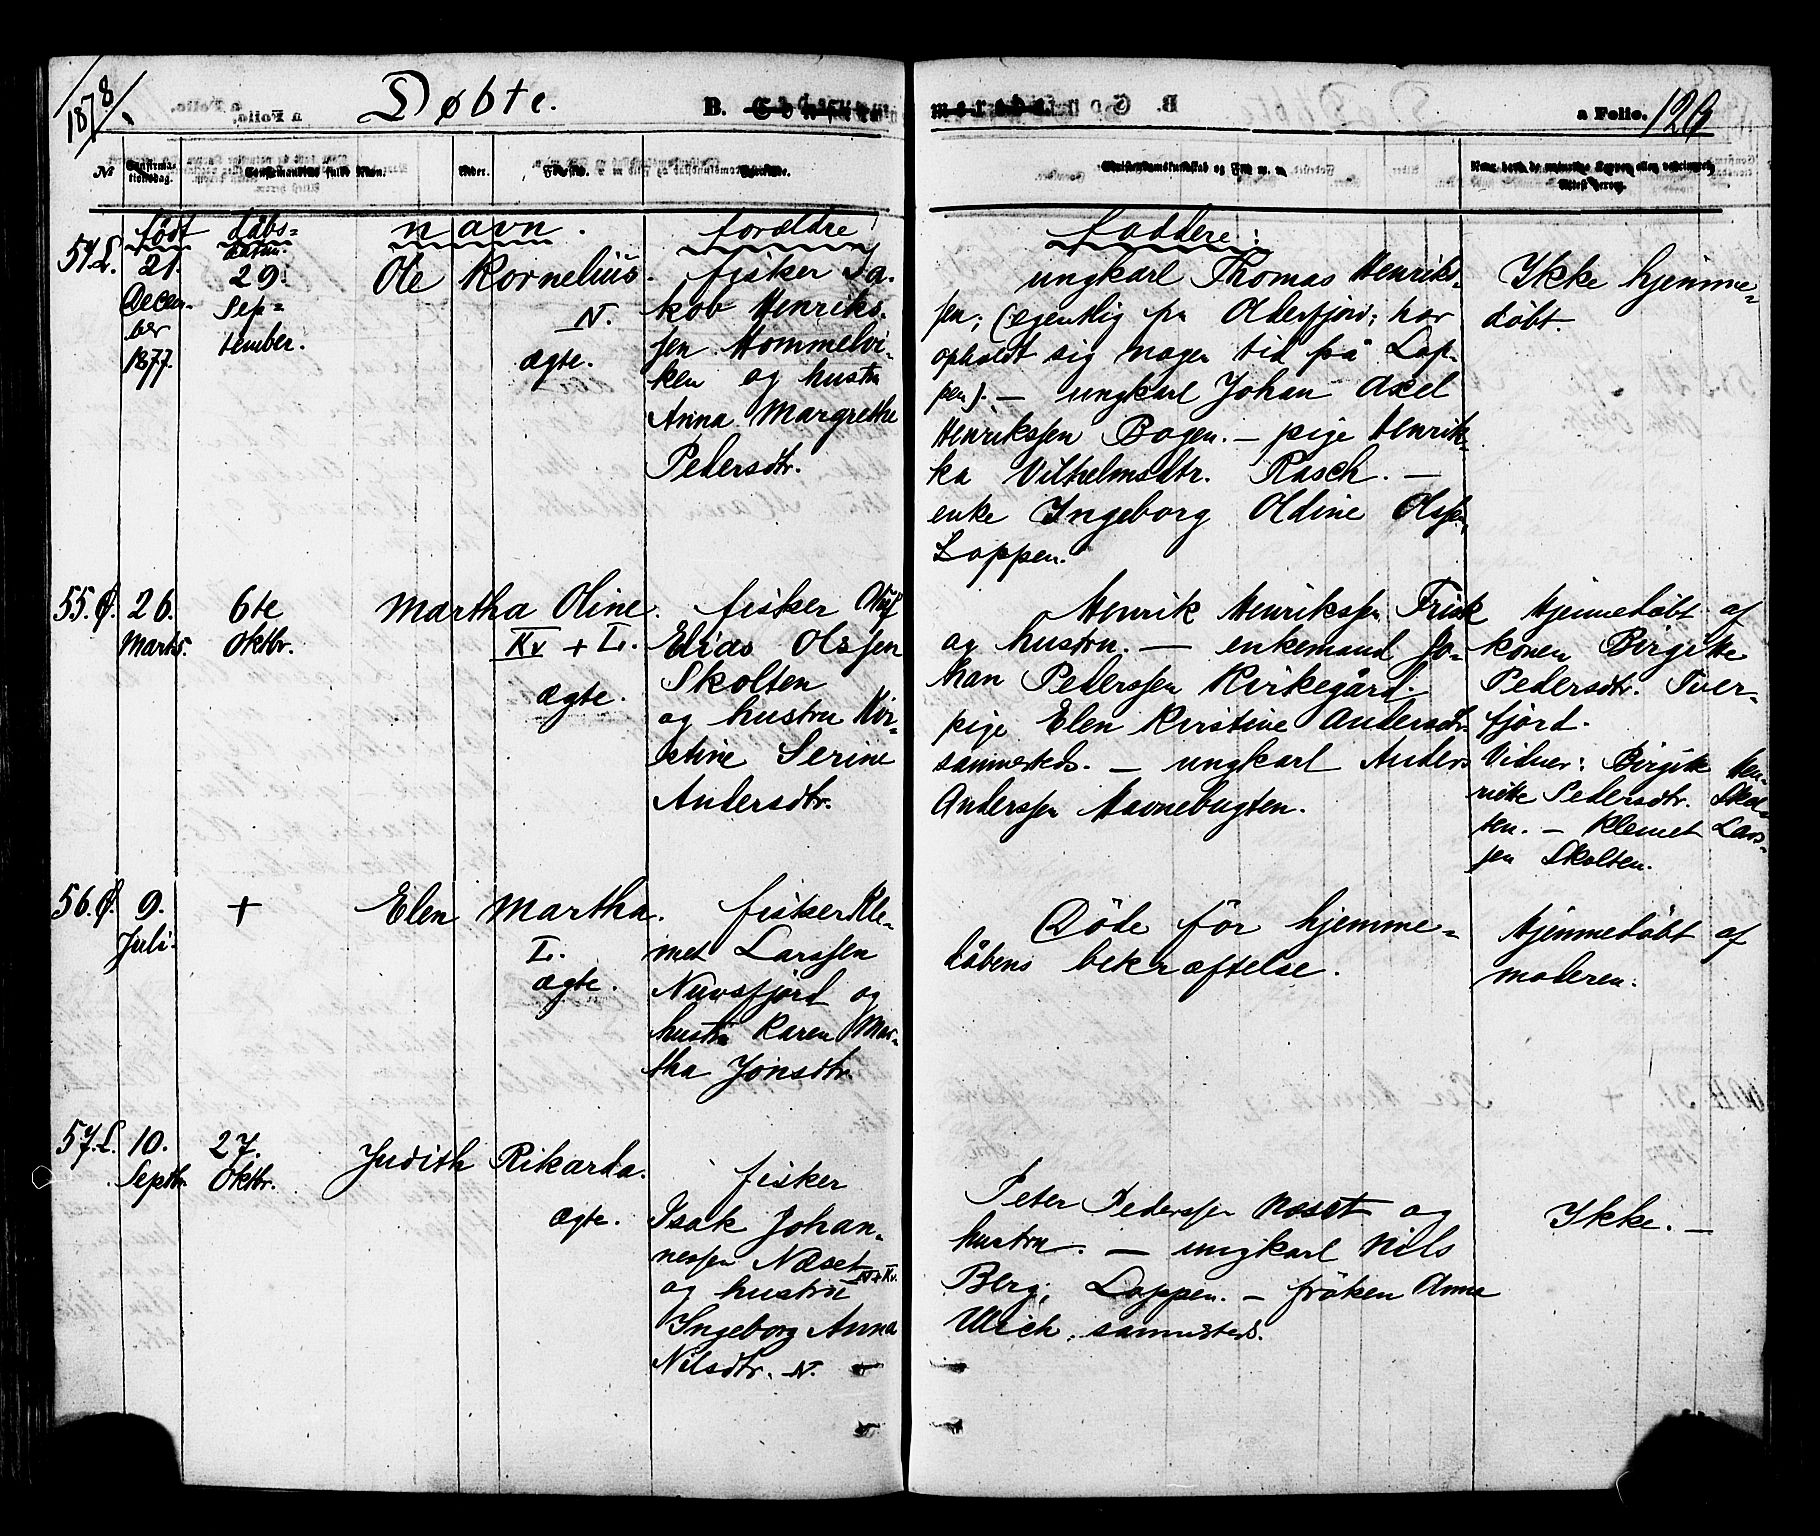 1878. Døbte. B. a Folio. 129
No Confirmationsdag. Confirmandens fulde Navn. Alder.
født dåbs= navn. forældre faddere:
datum.
54.L. 21. December 1877.
29. September.
Ole Kornelius.
N.
ægte.
fisker Ja-
kob Henriks-
sen Hommelvi-
ken og hustru
Anna Margrethe
Pedersdtr.
ungkarl Thomas Henriks-
sen; (egentlig fra Olderfjord; har
opholdt sig nogen tid på Lop-
pen). — ungkarl Johan Axel
Henrikssen Bogen. — pige Henrik-
ka Vilhelmsdtr. Rasch. —
enke Ingeborg Oldine Olssen,
Loppen.
Ikke hjemme-
døbt.
55. 26. Marts.
6te Oktbr.
Martha Oline.
Kv + L.
ægte.
fisker
Elias Olssen
Skolten
og hustru Kir-
stine Serine
Andersdtr.
Henrik Henrikssen Frisk
og hustru. — enkemand Jo-
han Pederssen Kirkegård.
pige Elen Kristine Andersdtr.
sammesteds. — ungkarl Anders
Anderssen Havnebugten.
Hjemmedøbt af
konen Birgitte
Pedersdtr. Tver-
fjord.
Vidner: Birgitte Hen-
rikke Pedersdtr. Skol-
ten. — Klemet Lars-
sen Skolten.
56. 9. Juli.
+
Elen Martha.
L.
ægte.
fisker Kle-
met Larssen
Nuvsfjord og
hustru Karen Mar-
tha Jonsdtr.
Døde før hjemme-
dåbens bekræftelse.
Hjemmedøbt af
moderen.
57.L. 10. Septbr.
27. Oktbr.
Judith Rikarda.
ægte.
fisker
Isak Johan-
nessen Næset
N + Kv.
og hustru
Ingeborg Anna
Nilsdtr. N.
Peter Pederssen Næset og
hustru. — ungkarl Nils
Berg; Loppen. — frøken Anna
Ulich, sammesteds.
Ikke. —